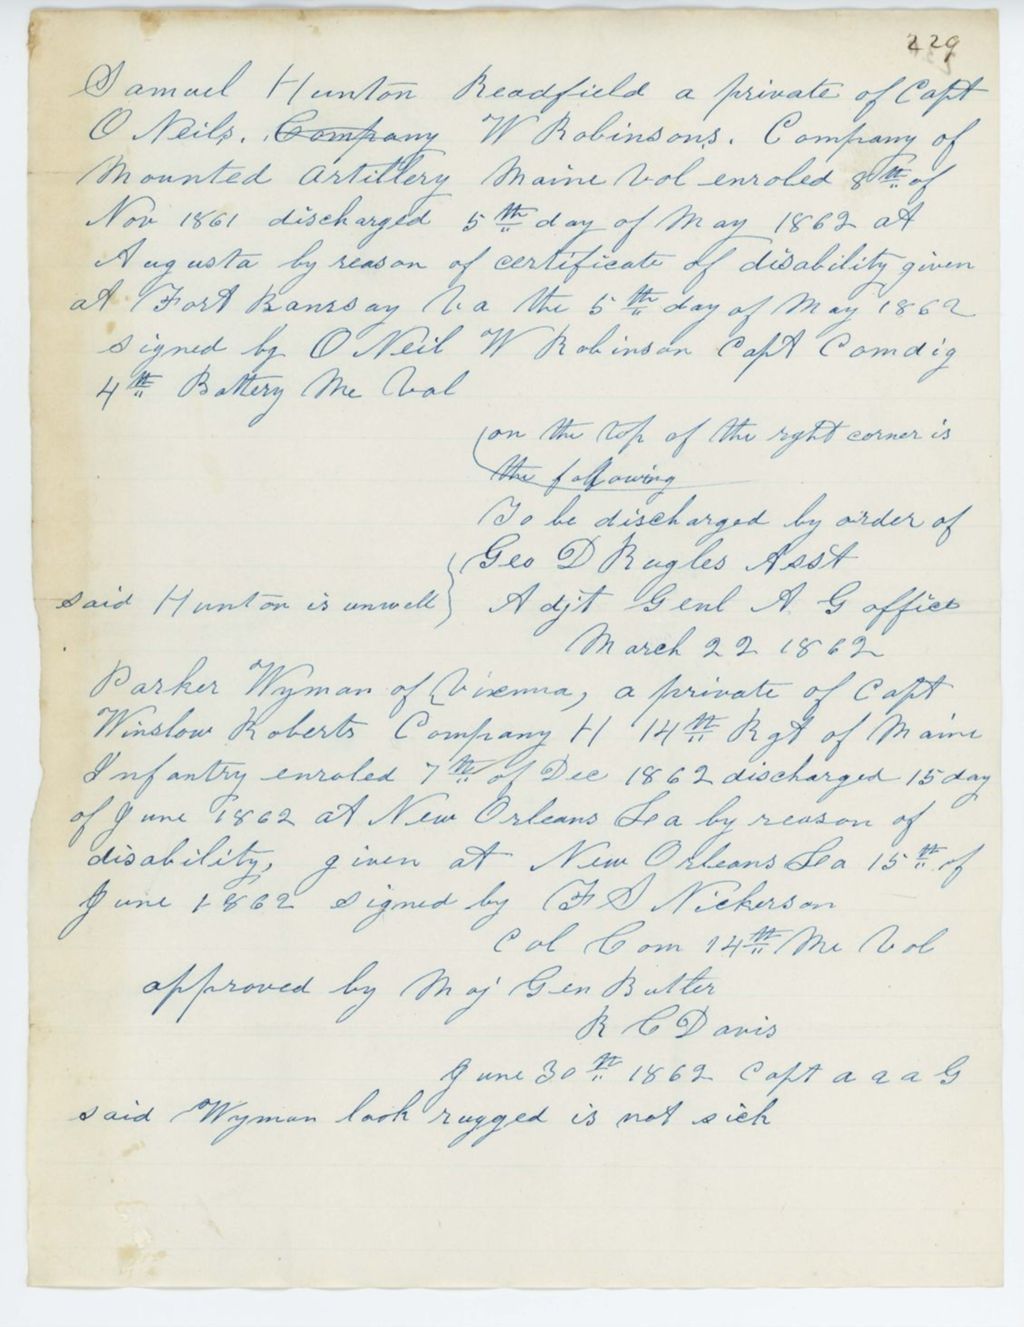 229
Samuel Hunton Readfield a private of Capt
O Neils. Company W Robinsons. Company of
Mounted Artillery Maine Vol enroled 8th of
Nov 1861 discharged 5th day of May 1862 at
Augusta by reason of certificate of disability given
at Fort Ramsay Va the 5th day of May 1862
signed by O Neil W Robinson Capt Comdig
4th Battery Me Vol
on the top of the right corner is
the following
To be discharged by order of
Geo D Rugles Asst
said Hunton is unwell Adjt Genl A. G office
March 22 1862
Parker Wyman of Vienna, a private of Capt
Winslow Roberts Company H 14th Rgt of Maine
Infantry enroled 7th of Dec 1862 discharged 15 day
of June 1862 at New Orleans La by reason of
disability, given at New Orleans La 15th of
June 1862 signed by F S Nickerson
Col Com 14th Me Vol
approved by Maj Gen Butler
R C Davis
June 30th 1862 Capt a a a G
said Wyman look rugged is not sick